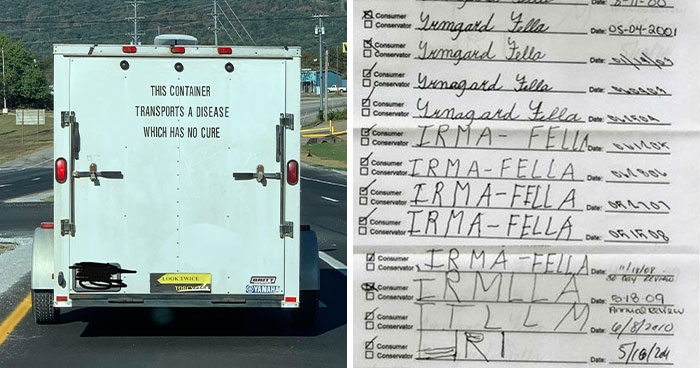 THIS CONTAINER
TRANSPORTS A DISEASE
WHICH HAS NO CURE
LOOK TWICE
BRITT
YAMAHA
Consumer
Conservator Yrmgard Fella Date: 05-04-2001
Consumer
Conservator Yrmgard Fella Date:
Consumer
Conservator Yrnagard Fella Date:
Consumer
Conservator Yrnagard Fella Date:
Consumer
Conservator IRMA-FELLA Date:
Consumer
Conservator IRMA-FELLA Date:
Consumer
Conservator IRMA-FELLA Date:
Consumer
Conservator IRMA-FELLA Date:
Consumer
Conservator IRMA-FELLA Date: 11/18/08
Consumer
Conservator IRMLLA Date: 5-18-09
ANNUAL REVIEW
Consumer
Conservator ITLLM Date: 6/8/2010
Consumer
Conservator Date: